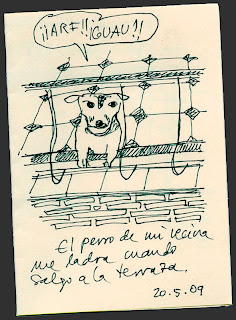 ¡¡ARF!! ¡GUAU!!
El perro de mi vecina
me ladra cuando
salgo a la terraza.
20.5.09